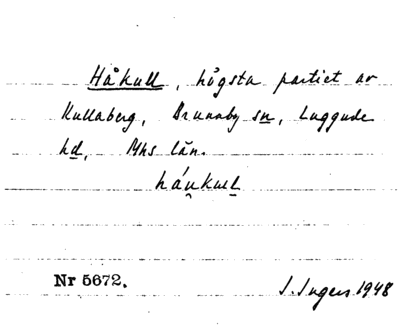 Håkull, högsta partiet av
Kullaberg, Brunnby sn, Luggude
hd, Mhs län.
háu̯kull
Nr 5672.
I. Ingers 1948